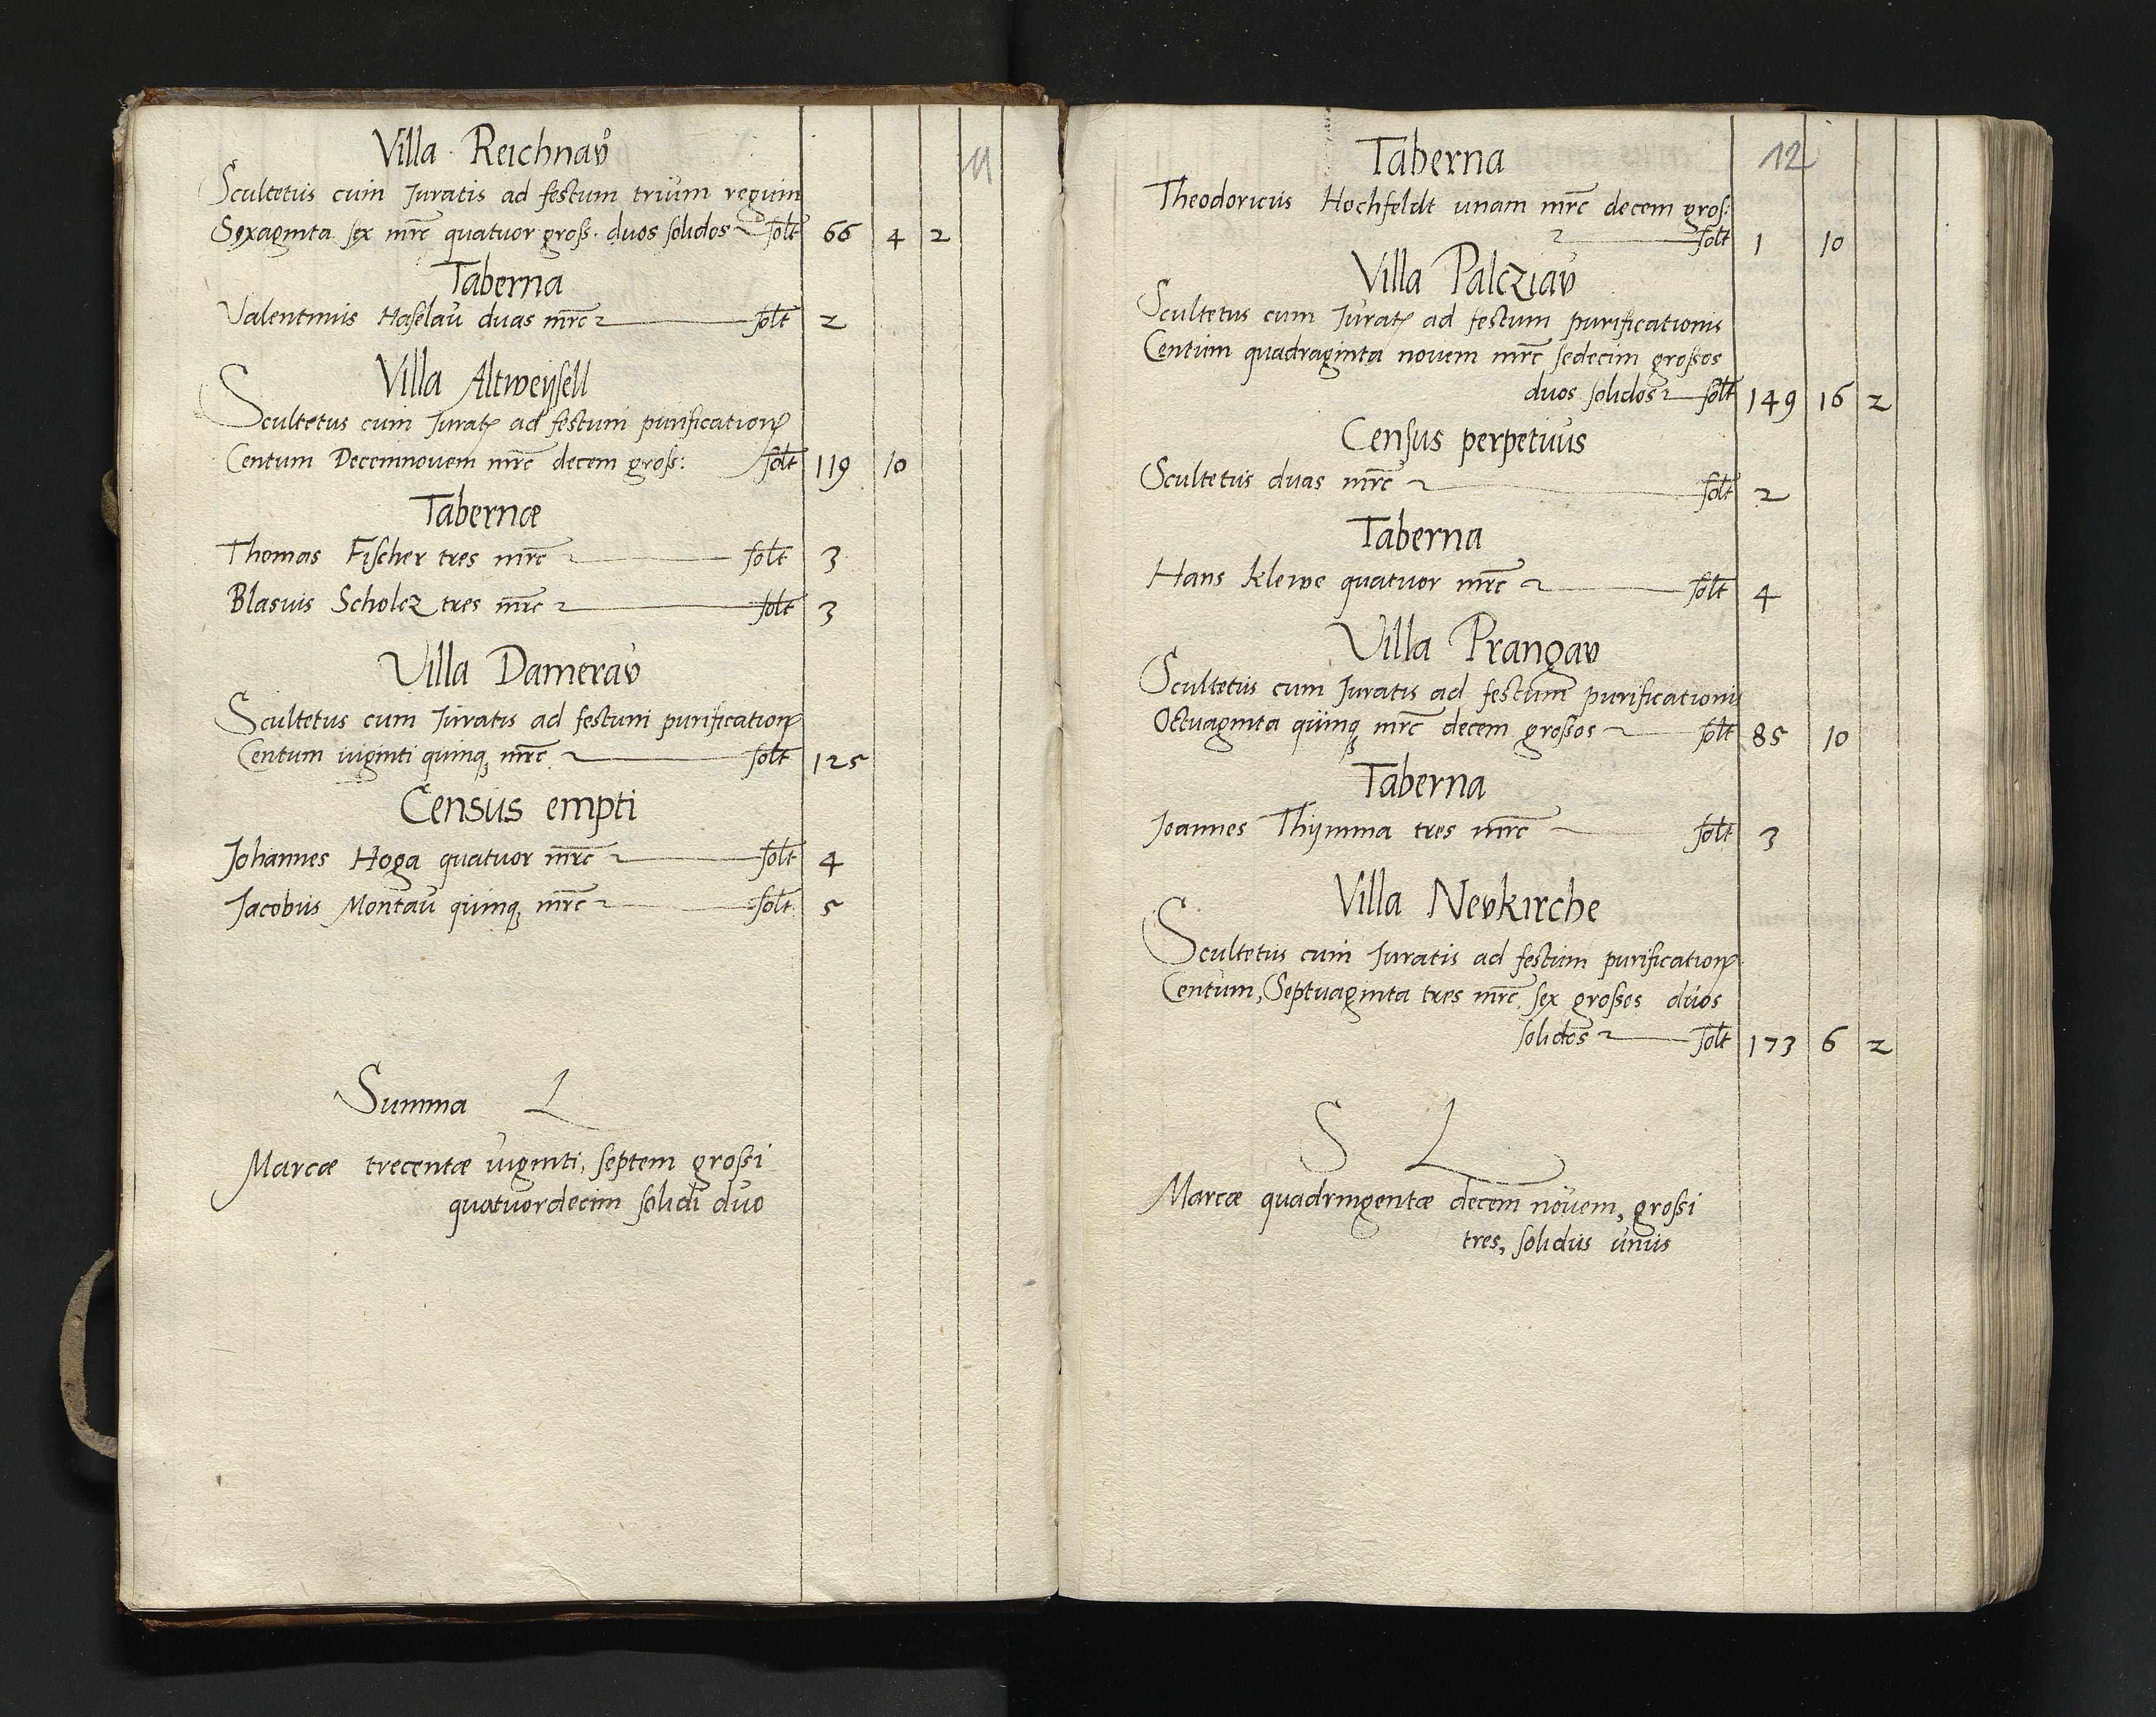 11
Villa Reichnaů
Scultetus cum Juratis ad festum trium regum
Sexaginta sex mrc quatuor gross. duos solidos solt 66 4 2
Taberna
Valentinus Haselau duas mrc solt 2
Villa Altweÿsell
Scultetus cum Jurat ad festum purification
Centum Decemnovem mrc decem gross: solt 119 10
Tabernæ
Thomas Fischer tres mrc solt 3
Blasius Scholcz tres mrc solt 3
Villa Damerav
Scultetus cum Juratis ad festum purification
Centum viginti quinq mrc solt 125
Census empti
Johannes Hoga quatuor mrc solt 4
Jacobus Montau quinq mrc solt 5
Summa L
Marcæ trecentæ viginti, septem grossi
quatuordecim solidi duo
12
Taberna
Theodoricus Hochfeldt unam mrc decem gros:
solt 1 10
Villa Palcziav
Scultetus cum Jurat ad festum purificationis
Centum quadraginta novem mrc sedecim grossos
duos solidos solt 149 16 2
Census perpetuus
Scultetus duas mrc solt 2
Taberna
Hans Klewe quatuor mrc solt 4
Villa Prangav
Scultetus cum Juratis ad festum purificationis
Octuaginta quinq mrc decem grossos solt 85 10
Taberna
Joannes Thÿmma tres mrc solt 3
Villa Nevkirche
Scultetus cum Juratis ad festum purification
Centum, Septuaginta tres mrc sex grossos duos
solidos solt 173 6 2
S L
Marcæ quadringentæ decem novem, grossi
tres, solidus unus